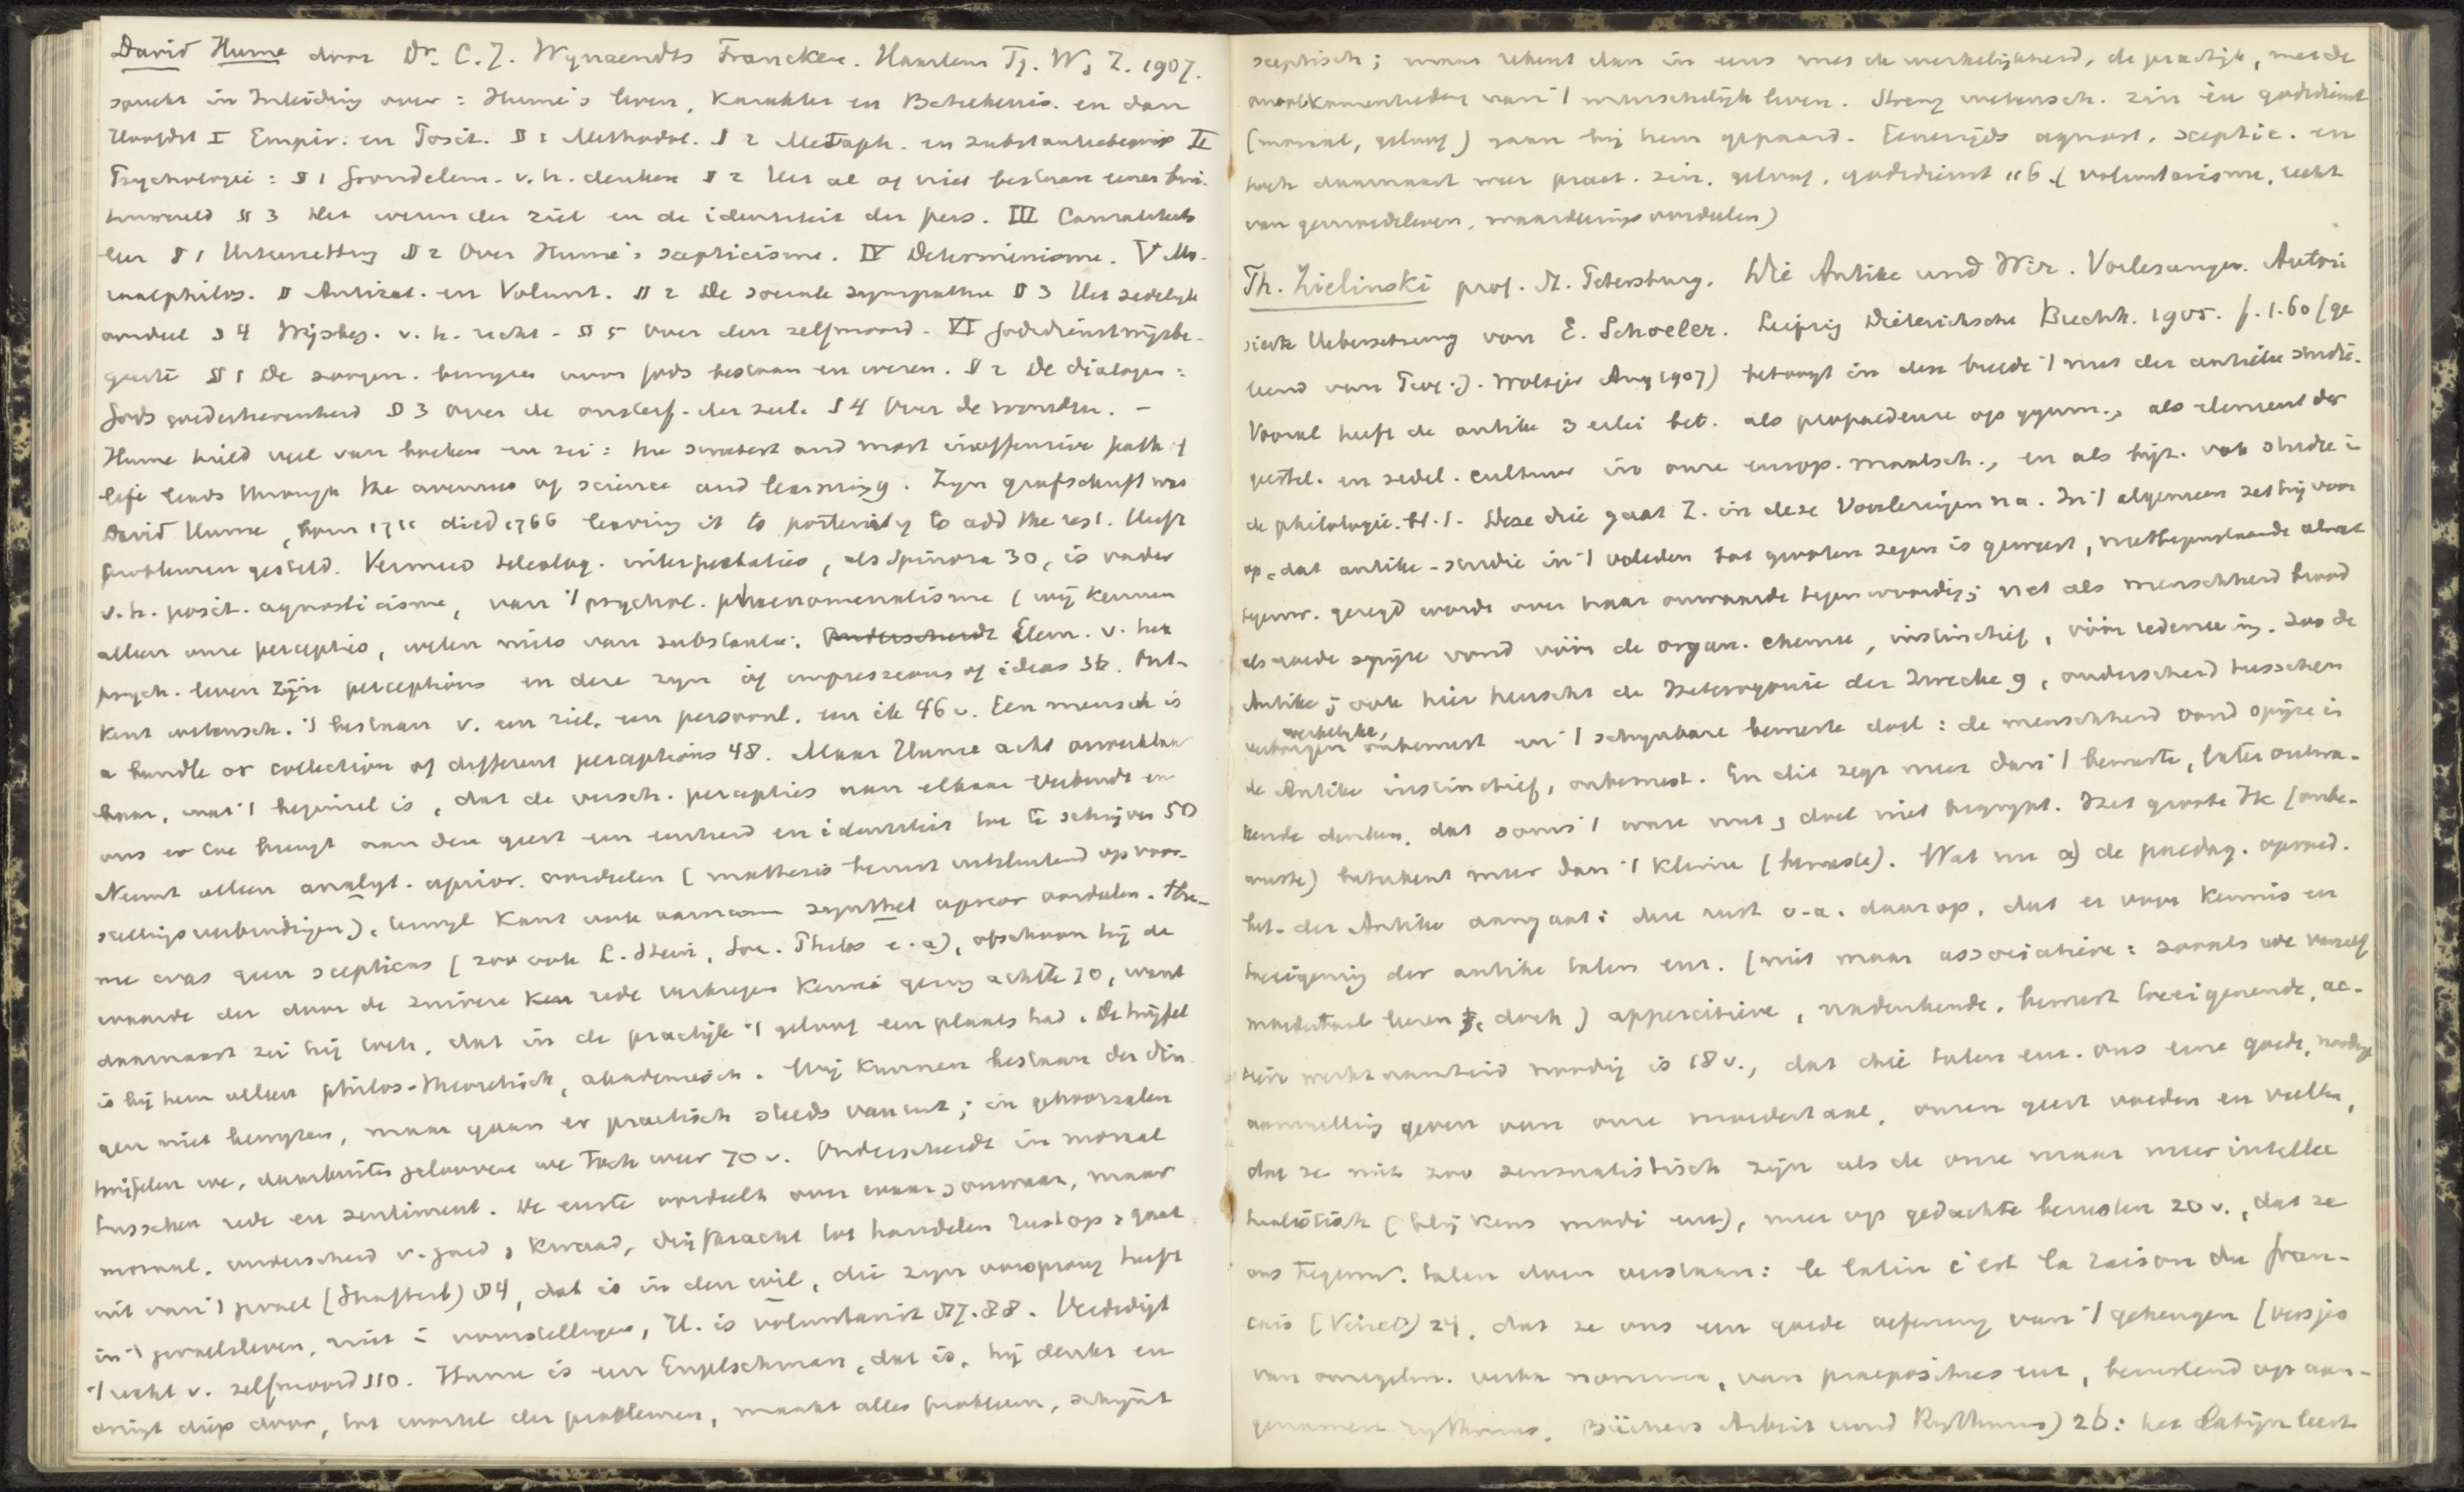 David Hume door Dr. C. J. Wynaendts Francken. Haarlem Tj. W. Z. 1907.
spreekt in Inleiding over: Hume's leven, karakter en Beteekenis. en dan
Hoofdst I Empir. en Posit. § 1 Methodol. § 2 Metaph. en substantiebegrip II
Psychologie: § 1 Grondelem. v. h. denken § 2 Het al of niet bestaan eener bui-
tenwereld § 3 Het wezen der ziel en de identiteit der pers. III Causaliteits
leer § 1 Uiteenzetting § 2 Over Hume's scepticisme. IV Determinisme. V Mo-
raalphilos. § Antirat. en Volunt. § 2 De sociale sympathie § 3 Het zedelijk
oordeel § 4 Wijsbeg. v. h. recht - § 5 Over den zelfmoord - VI Godsdienstwijsbe-
geerte § 1 De zoogen. bewijzen voor Gods bestaan en wezen. § 2 De dialogen:
Gods goedertierenheid § 3 Over de onsterf. der ziel. § 4 Over de wondren. -
Hume hield veel van boeken en zei: the sweetest and most inoffensive path of
life leads through the avenues of science and learning. Zijn grafschrift was
David Hume, born 1711 died 1766 leaving it to posterity to add the rest. Heeft
problemen gesteld. Vermeed teleolog. interpretaties, als Spinoza 30, is vader
v. h. posit. agnosticisme, van 't psychol. phaenomenalisme (wij kennen
alleen onze percepties, weten niets van substantie: Onderscheidt Elem. v. het
psych. leven zijn perceptions en deze zijn of impressions of ideas 36. Ont-
kent wetensch. 't bestaan v. een ziel, een persoonl. een ik 46 v. Een mensch is
a bundle or collection of different perceptions 48. Maar Hume acht onverklaar
baar, wat 't beginsel is, dat de versch. percepties aan elkaar verbindt en
ons er toe brengt aan den geest een eenheid en identiteit toe te schrijven 50
Neemt alleen analyt. aprior. oordeelen (mathesis berust uitsluitend op voor-
stellingsverbindingen), terwijl Kant ook aannam synthet aprior oordeelen. Hu-
me was geen scepticus (zoo ook L. Stein, Soc. Philos e. a), ofschoon hij de
waarde der door de zuivere ken rede verkregen kennis gering achtte 70, want
daarnaast zei hij toch, dat in de practijk 't geloof een plaats had. De twijfel
is bij hem alleen philos-theoretisch, akademisch. Wij kunnen bestaan der din
gen niet bewijzen, maar gaan er practisch steeds van uit; in gehoorzalen
twijfelen we, daarbuiten gelooven we toch weer 70 v. Onderscheidt in moraal
tusschen rede en sentiment. De eerste oordeelt over waar, onwaar, maar
moraal, onderscheid v. goed, kwaad, drijfkracht tot handelen rust op, gaat
uit van 't gevoel (Shaftesb) 84, dat is in den wil, die zijn oorsprong heeft
in 't gevoelsleven, niet i voorstellingen, H. is voluntarist 87.88. Verdedigt
't recht v. zelfmoord 110. Hume is een Engelschman, dat is, hij denkt en
dringt diep door, tot wortel der problemen, maakt alles probleem, schijnt
sceptisch; maar rekent dan in eens met de werkelijkheid, de practijk, met de
onvolkomenheden van 't menschelijk leven. Streng wetensch. zin en godsdienst
(moraal, geloof) gaan bij hem gepaard. Eenerzijds agnost. sceptic. en
toch daarnaast weer pract. zin, geloof, godsdienst 116 (voluntarisme, recht
van gemoedsleven, waardeeringsoordeelen)
Th. Zielinski prof. St. Petersburg. Die Antike und Wir. Vorlesungen. Autori
sierte Uebersetzung von E. Schoeler. Leipzig Dieterichsche Buchh. 1905. f. 1.60 (ge
leend van Prof. J. Woltjer Aug 1907) betoogt in den breede 't nut der antieke studie.
Vooral heeft de antike 3 erlei bet. als propaedeuse op gymn., als element der
geestel. en zedel. cultuur in onze europ. maatsch., en als bijz. vak studie i
de philologie. bl. 1. Deze drie gaat Z. in deze Voorlezingen na. In 't algemeen zet hij voor
op, dat antike-studie in 't verleden tot grooten zegen is geweest, niettegenstaande alwat
tegenw. gezegd worde over haar onwaarde tegenwoordig; net als menschheid brood
als goede spijze vond vóór de organ. chemie, instinctief, vóór redeneering. Zoo de
Antike; ook hier heerscht de Heterogonie der Zwecke 9, onderscheid tusschen
werkelijke,
verborgen onbewust en 't schijnbare bewuste doel: de menschheid vond spijze in
de Antike instinctief, onbewust. En dit zegt meer dan 't bewuste, later ontwa-
kende denken, dat soms 't ware nut, doel niet begrijpt. Het groote Ik (onbe-
wuste) beteekent meer dan 't kleine (bewuste). Wat nu a) de paedag. opvoed.
bet. der Antike aangaat: deze rust o.a. daarop, dat er voor kennis en
toeeigening der antike talen enz. (niet maar associatieve: zooals we vanzelf
moedertaal leeren, doch) apperceptieve, nadenkende, bewust toeeigenende, ac-
tieve werkzaamheid noodig is 18 v., dat die talen enz. ons eene goede, noodige
aanvulling geven van onze moedertaal, onzen geest voeden en vullen,
dat ze niet zoo sensualistisch zijn als de onze maar meer intellec
tualistisch (blijkens modi enz), meer op gedachte berusten 20 v., dat ze
ons tegenw. talen doen verstaan: le latin c'est la raison du fran-
cais (Vinet) 24, dat ze ons een goede oefening van 't geheugen (versjes
van onregelm. verba nomina, van praeposities enz, berustend op aan-
genamen rythmus. Büchers Arbeit und Rythmus) 26: het Latijn leert